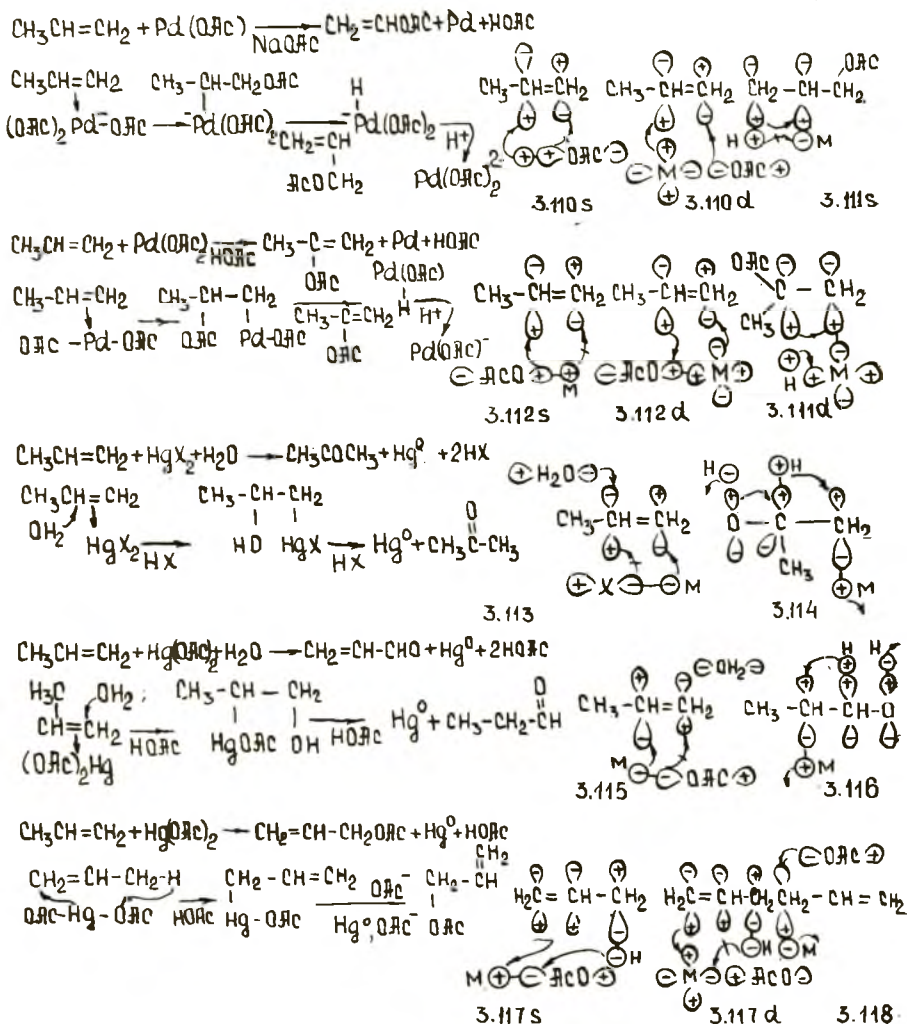 CH3CH=CH2 + Pd(OAc) → NaOAc CH2=CHOAC + Pd + HOAC
CH3CH=CH2 CH3-CH-CH2OAC H
(OAC)2Pd-OAC → -Pd(OAC)2 → -Pd(OAC)2 H+
CH2=CH
ACOCH2 Pd(OAC)2
CH3-CH=CH2 CH3-CH=CH2 CH2-CH-CH2 OAC
OAC M OAC H M
3.110s 3.110d 3.111s
CH3CH=CH2 + Pd(OAC)2 → HOAC CH3-C=CH2 + Pd + HOAC
OAC Pd(OAC)
CH3-CH=CH2 CH3-CH-CH2 CH3-C=CH2 H H+
OAC-Pd-OAC → OAC Pd-OAC OAC Pd(OAC)-
CH3-CH=CH2 CH3-CH=CH2 OAC C-CH2 CH3
ACO M ACO M H M
3.112s 3.112d 3.111d
CH3CH=CH2 + HgX2 + H2O → CH3COCH3 + Hg0 + 2HX
CH3CH=CH2 CH3-CH-CH2 O
OH2 HgX2 → HX HO HgX → HX Hg0 + CH3C-CH3
H2O CH3-CH=CH2 X M
H H O-C-CH2 CH3 M
3.113 3.114
CH3CH=CH2 + Hg(OAC)2 + H2O → CH2=CH-CHO + Hg0 + 2HOAC
H3C OH2 ; CH3-CH-CH2 O
CH=CH2 → HOAC HgOAC OH → HOAC Hg0 + CH3-CH2-CH
(OAC)2Hg
OH2 CH3-CH=CH2 M OAC
H H CH3-CH-CH-O M
3.115 3.116
CH3CH=CH2 + Hg(OAC)2 → CH2=CH-CH2OAC + Hg0 + HOAC
CH2=CH-CH2-H CH2-CH=CH2 OAC- CH2-CH CH2
OAC-Hg-OAC → HOAC Hg-OAC Hg0, OAC- OAC
H2C=CH-CH2 H2C=CH-CH2 CH2-CH=CH2 OAC
M ACO H M ACO H M
3.117s 3.117d 3.118